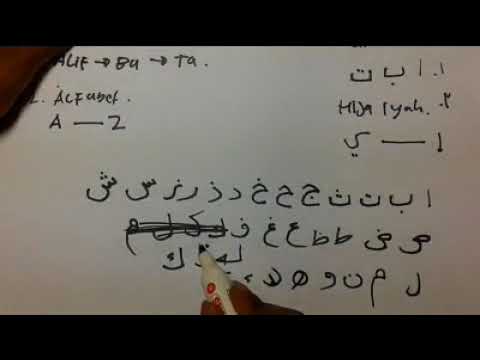 ALIF → Ba → Ta.
ALFabet.
A — Z
١. ا ب ت
HIJA Iyah. ٢
ا — ي
ا ب ت ث ج ح خ د ذ ر ز س ش
ص ض ط ظ ع غ ف
ك
ل م ن و ه لا ء